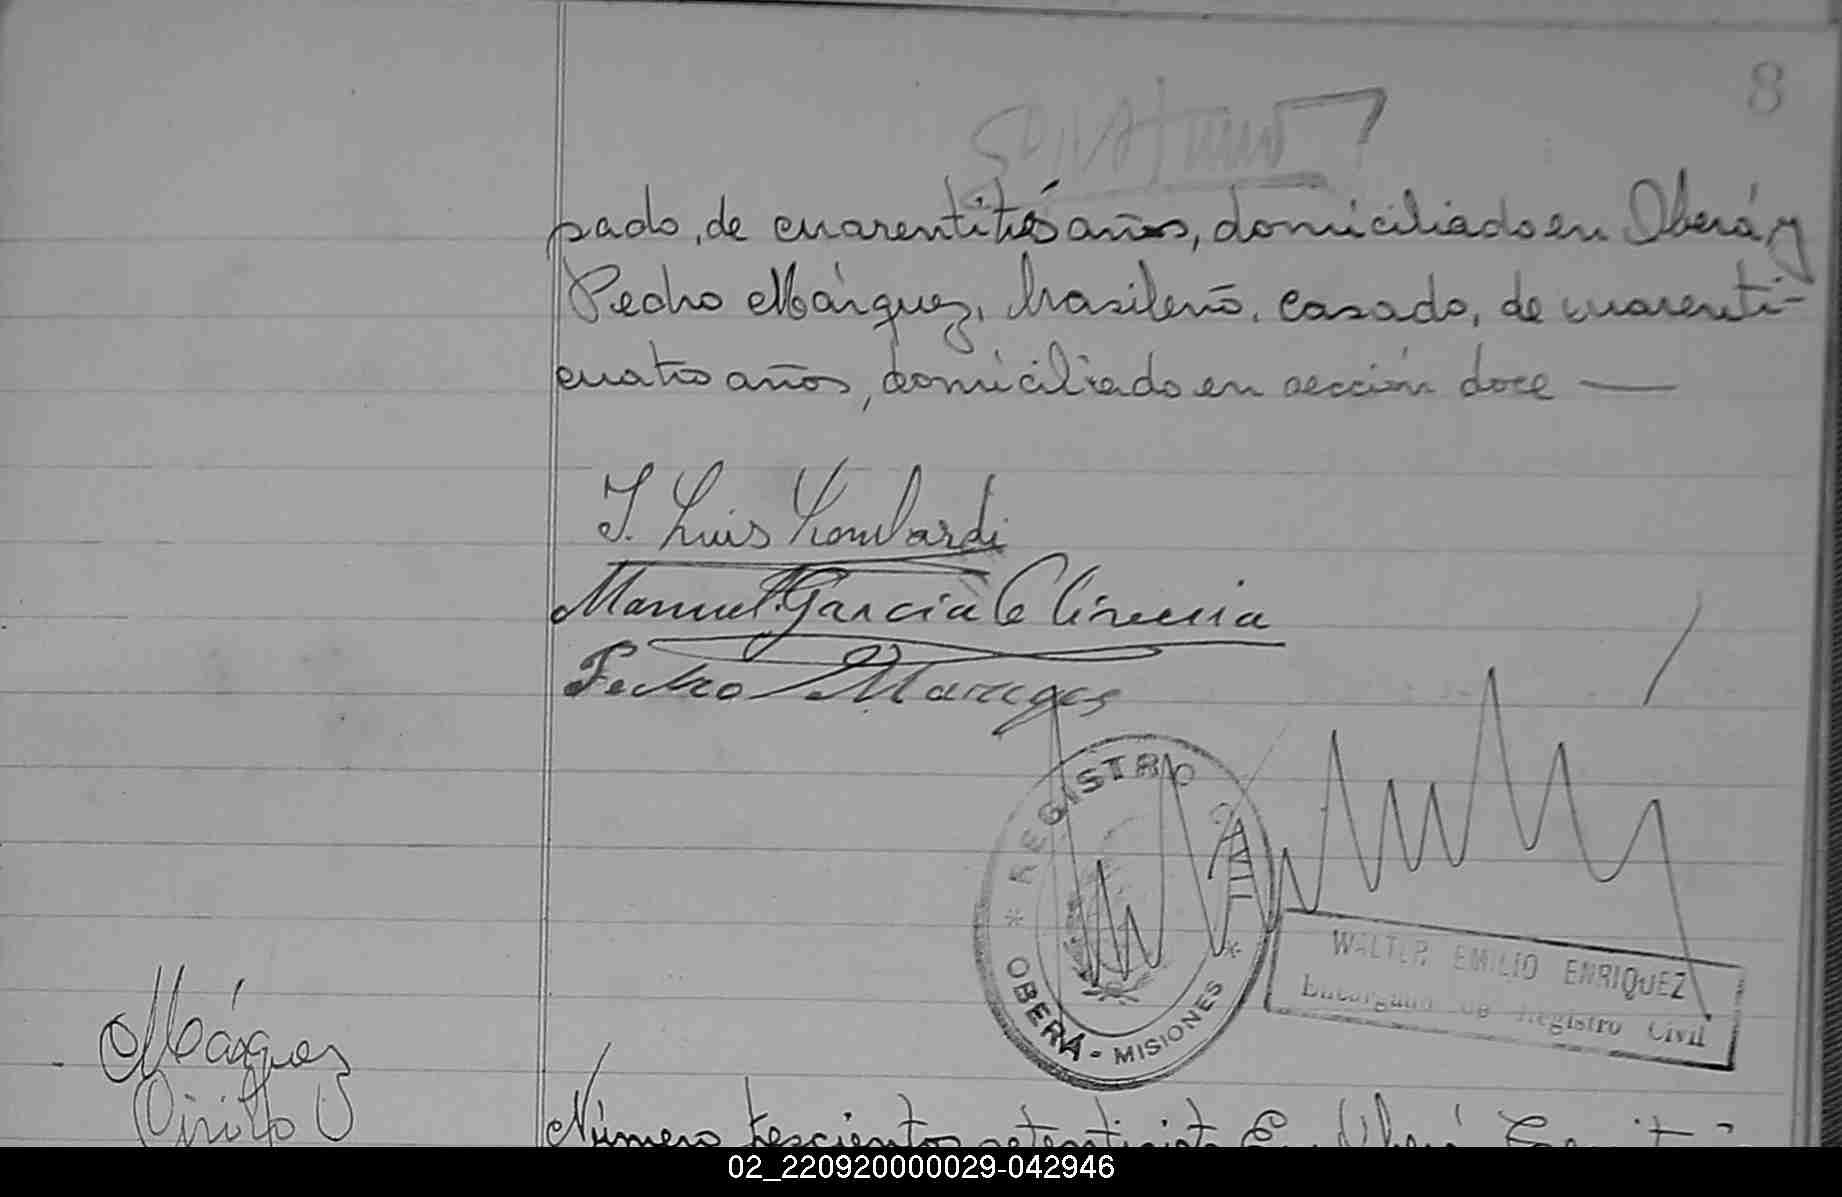 8
pado, de cuarentitrés años, domiciliado en Oberá y
Pedro Márquez, brasileño, casado, de cuarenti-
cuatro años, domiciliado en sección doce —
J. Luis Lombardi
Manuel García
Pedro Marques
* REGISTRO CIVIL *
OBERÁ - MISIONES
WALTER EMILIO ENRIQUEZ
Encargado de Registro Civil
Márquez
Cirilo
Número trescientos setentisiete En Oberá
02_220920000029-042946